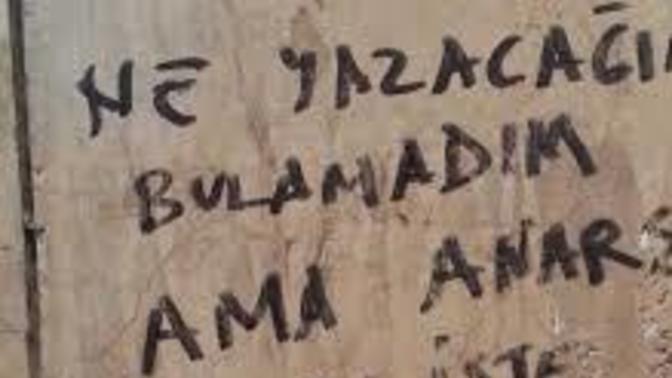 NE YAZACAĞI
BULAMADIM
AMA ANARŞ
İSTE